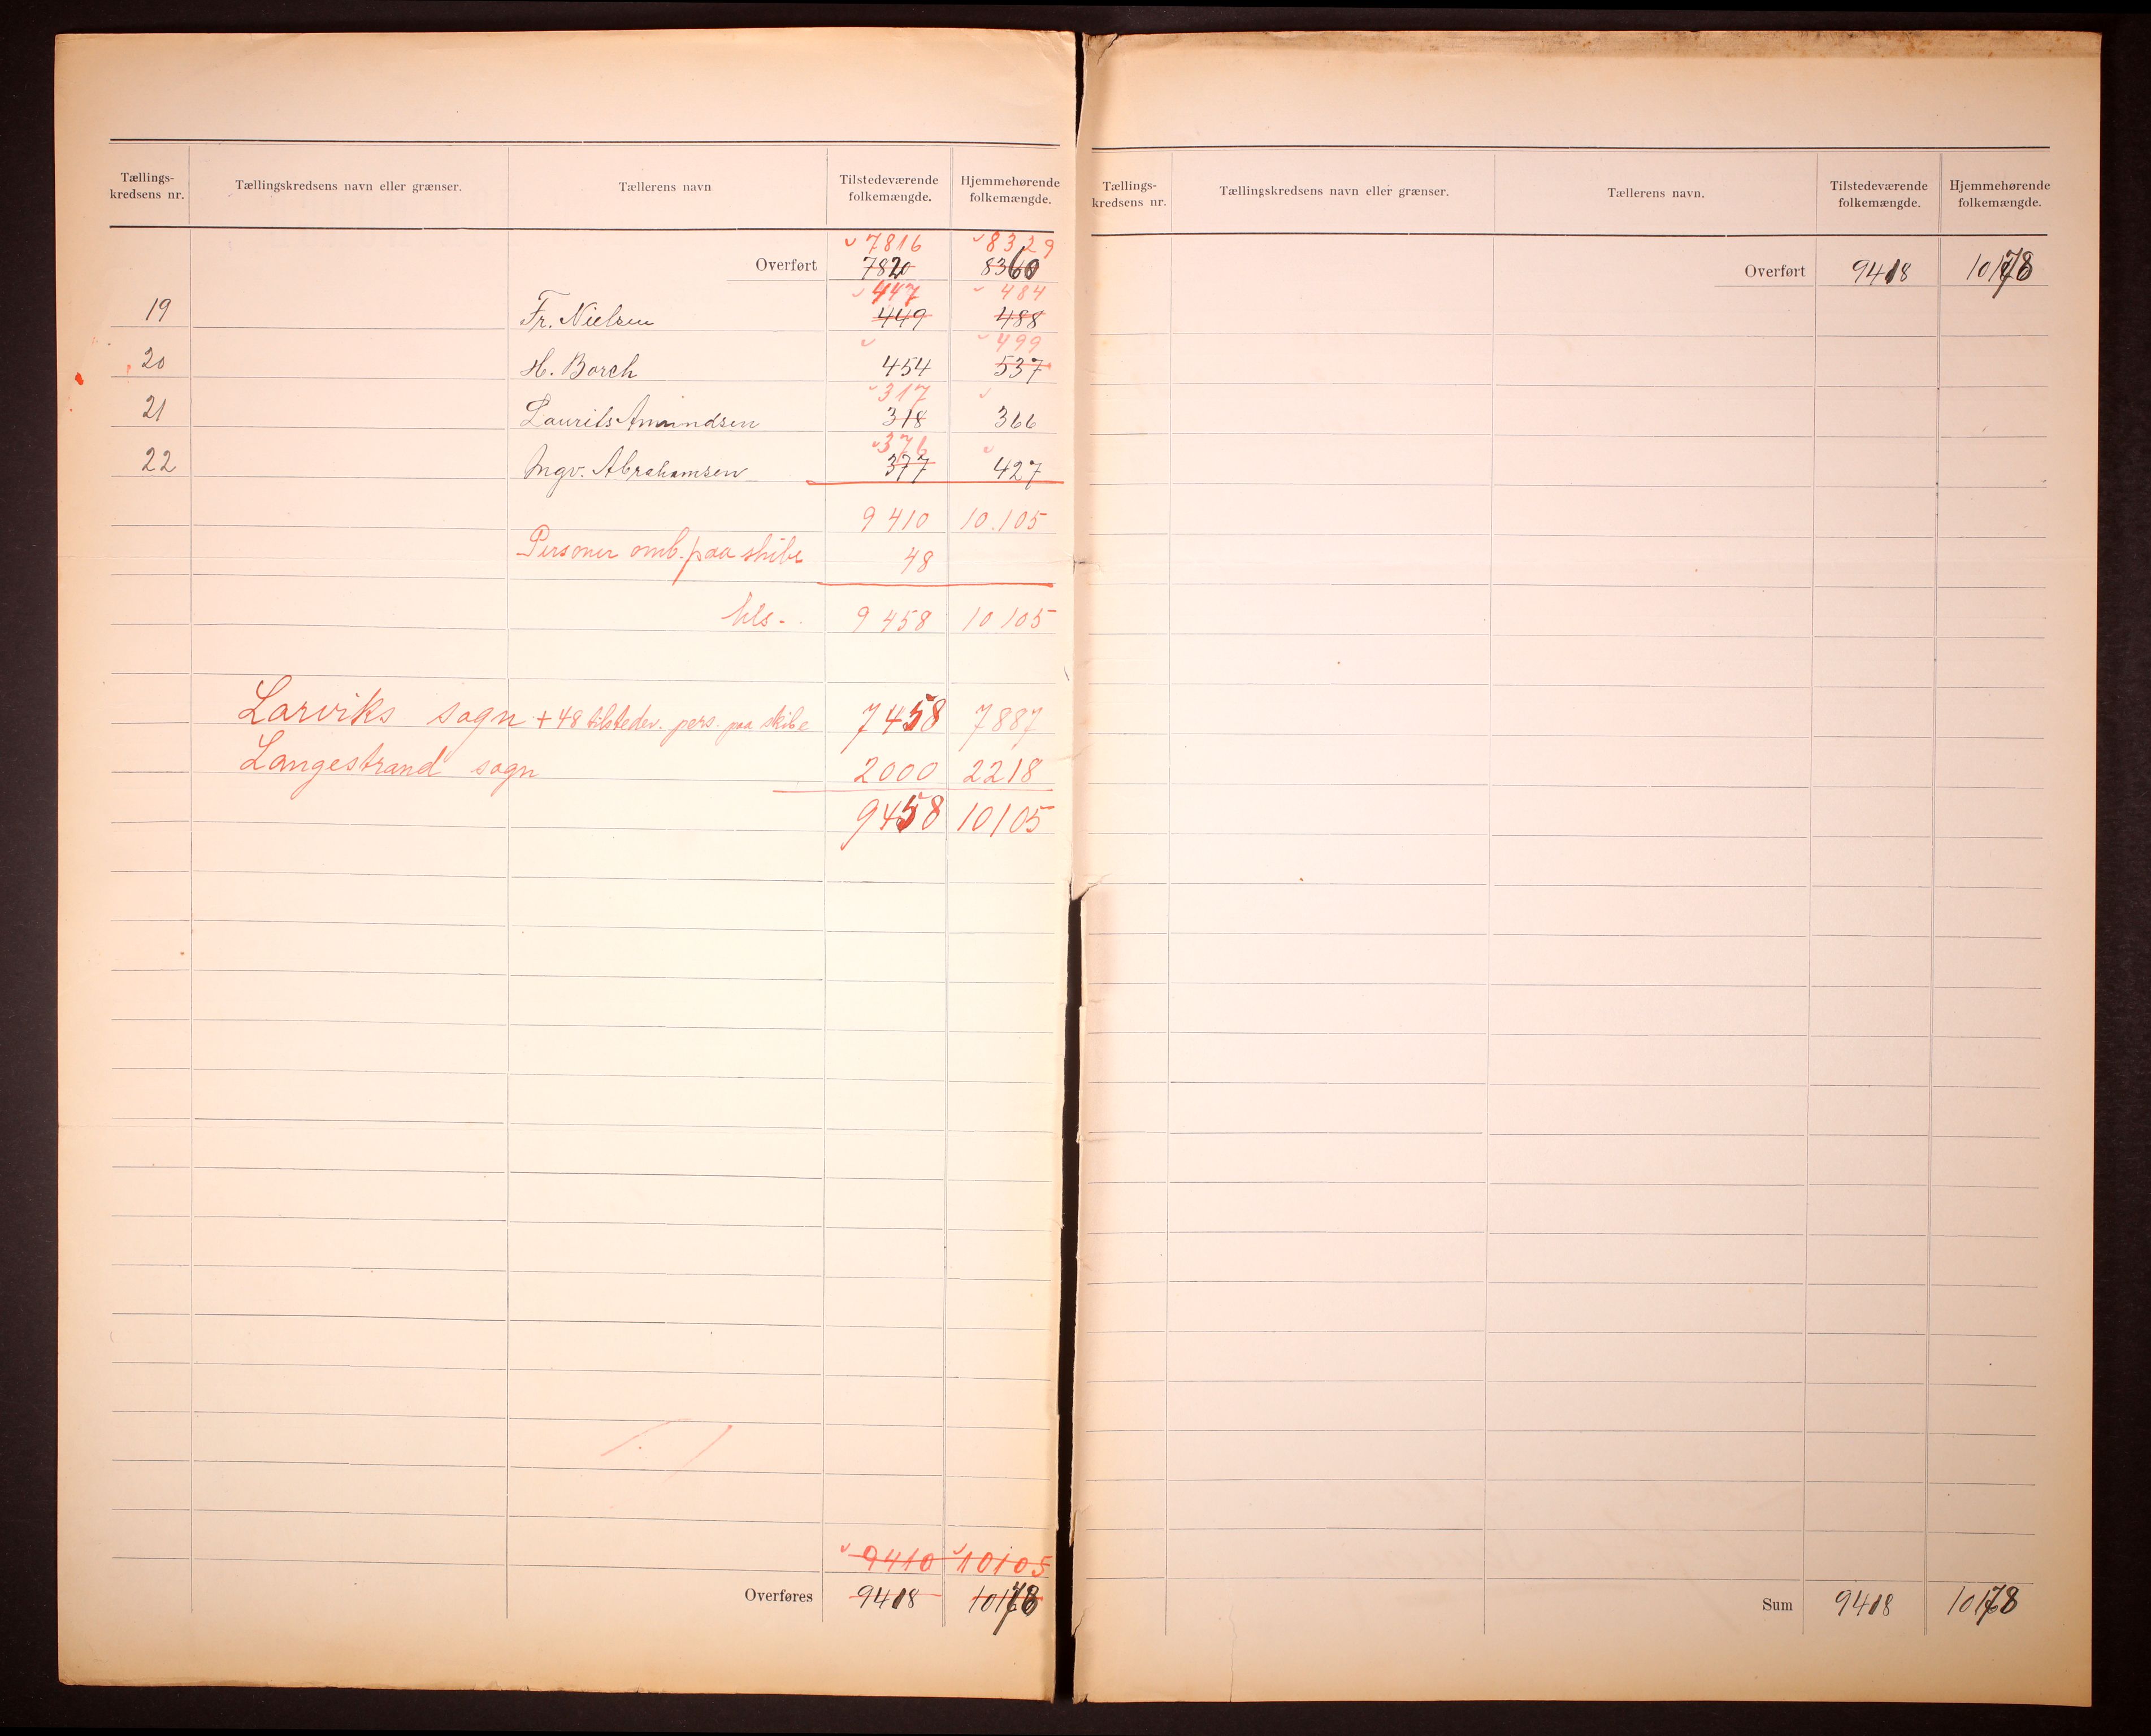 Tællings-kredsens nr. Tællingskredsens navn eller grænser. Tællerens navn Tilstedeværende folkemængde. Hjemmehørende folkemængde.
7816 8329
Overført 7820 8360
447 484
19 Fr. Nielsen 449 488
499
20 H. Borch 454 537
317
21 Laurits Amundsen 318 366
376
22 Ingv. Abrahamsen 377 427
9410 10.105
Personer omb. paa skibe 48
tils. 9458 10105
Larviks sogn + 48 tilstedev. pers. paa skibe 7458 7887
Langestrand sogn 2000 2218
9458 10105
9410 10105
Overføres 9418 10178
Tællings-kredsens nr. Tællingskredsens navn eller grænser. Tællerens navn. Tilstedeværende folkemængde. Hjemmehørende folkemængde.
Overført 9418 10178
Sum 9418 10178